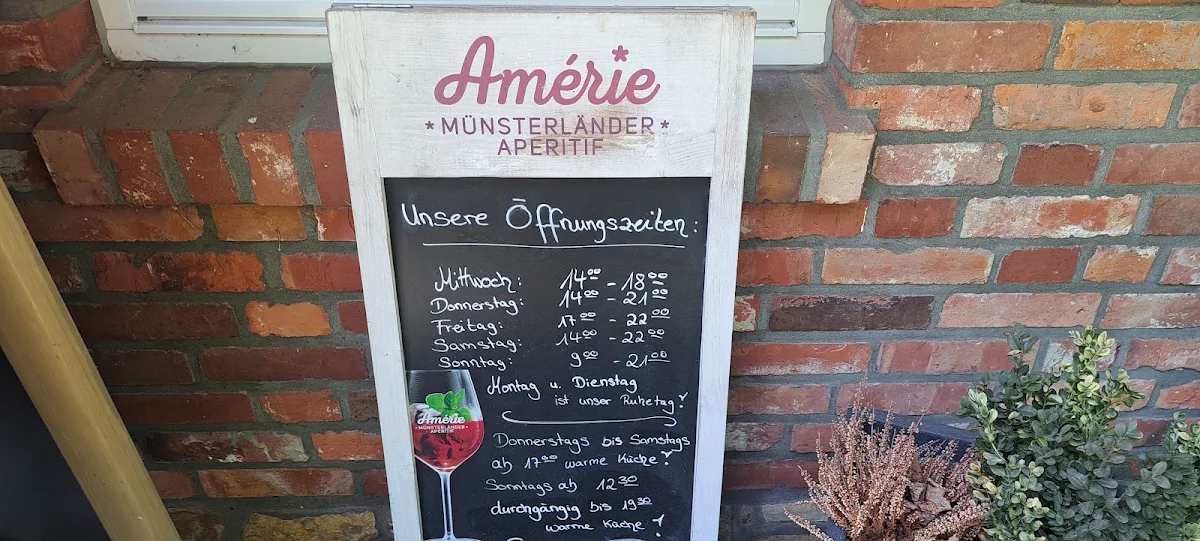 Amérie
* MÜNSTERLÄNDER *
APERITIF
Unsere Öffnungszeiten:
Mittwoch: 14⁰⁰ - 18⁰⁰
Donnerstag: 14⁰⁰ - 21⁰⁰
Freitag: 17⁰⁰ - 22⁰⁰
Samstag: 14⁰⁰ - 22⁰⁰
Sonntag: 9⁰⁰ - 21⁰⁰
Montag u. Dienstag
ist unser Ruhetag!
Amérie
MÜNSTERLÄNDER
APERITIF
Donnerstags bis Samstags
ab 17⁰⁰ warme Küche!
Sonntags ab 12³⁰
durchgängig bis 19³⁰
warme Küche!